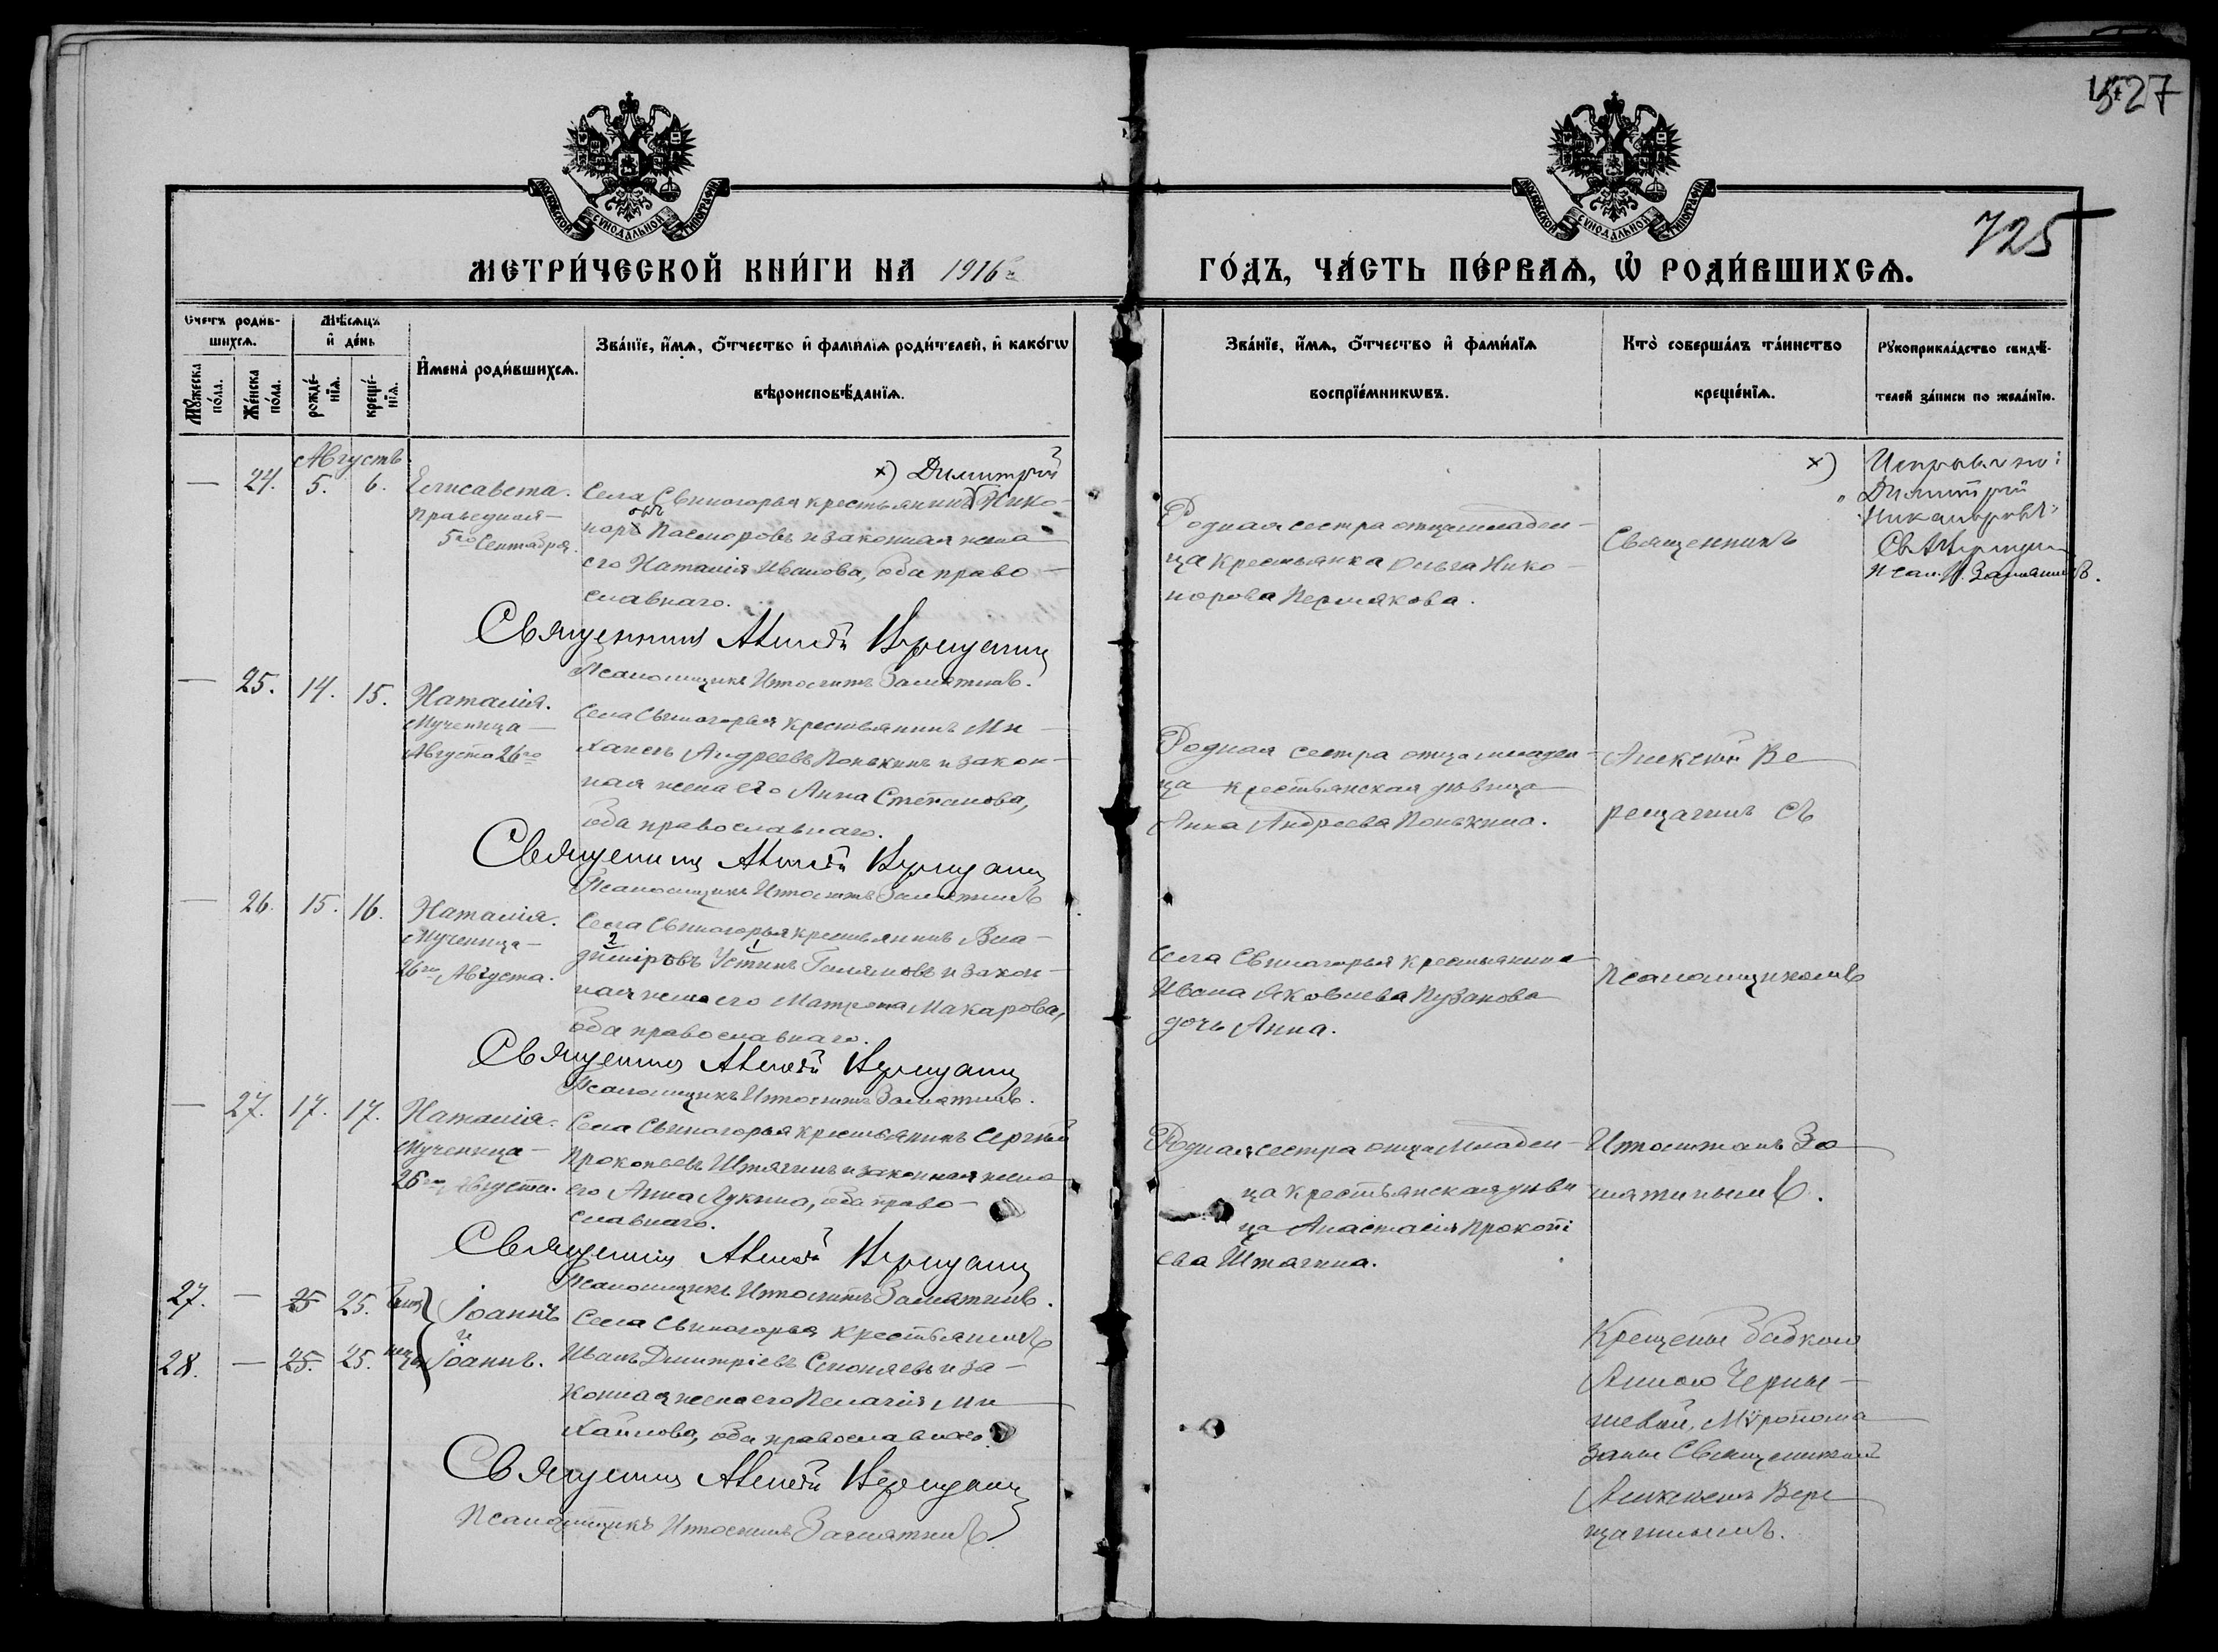 527
725
МОСКОВСКОЙ СУНОДАЛЬНОЙ ТИПОГРАФІИ
МОСКОВСКОЙ СУНОДАЛЬНОЙ ТИПОГРАФІИ
МЕТРИ́ЧЕСКОЙ КНИ́ГИ НА 1916 г.
ГО́ДЪ, ЧА́СТЬ ПЕ́РВАѦ, Ѿ РОДИ́ВШИХСѦ.
Счетъ роди́в-
шихсѧ.
Мѣсѧцъ
и҆ де́нь
Мꙋжеска
по́ла.
Же́нска
по́ла.
рожде́-
нїѧ.
креще́-
нїѧ.
И҆мена̀ роди́вшихсѧ.
Зва́нїе, и҆́мѧ, ѻ҆́тчество и҆ фами́лїѧ роди́телей, и҆ како́гѡ
вѣроисповѣ́данїѧ.
Зва́нїе, и҆́мѧ, ѻ҆́тчество и҆ фами́лїѧ
воспрїе́мникѡвъ.
Кто̀ соверша́лъ та́инство
креще́нїѧ.
Рꙋкоприкла́дство свидѣ́-
телей за́писи по жела́нїю.
Августъ.
— 24. 5. 6. Елисавета.
Праведная —
5го Сентября.
×) Димитрій
Села Свиногорья крестьянинъ Нико-
норовъ Пасморовъ и законная жена
его Наталія Иванова, оба право-
славнаго.
Священникъ Алексѣй Верещагинъ
Псаломщикъ Ипполитъ Замятинъ.
Родная сестра отца младен-
ца крестьянка Ольга Нико-
норова Пермякова.
Священникъ
×) Исправлено:
"Димитрій
Никаноровъ"
Св. А. Верещагинъ
Псал. И. Замятинъ.
— 25. 14. 15. Наталія.
Мученица —
Августа 26го
Села Свиногорья крестьянинъ Ми-
хаилъ Андреевъ Понькинъ и закон-
ная жена его Анна Степанова,
оба православнаго.
Священникъ Алексѣй Верещагинъ
Псаломщикъ Ипполитъ Замятинъ
Родная сестра отца младен-
ца крестьянская дѣвица
Анна Андреева Понькина.
Алексѣй Ве-
рещагинъ съ
— 26. 15. 16. Наталія.
Мученица —
26го Августа.
Села Свиногорья крестьянинъ Вла-
диміровъ Устинъ Галямовъ и закон-
ная жена его Матрона Макарова,
оба православнаго.
Священникъ Алексѣй Верещагинъ
Псаломщикъ Ипполитъ Замятинъ.
Села Свиногорья крестьянина
Ивана Яковлева Пузанова
дочь Анна.
Псаломщикомъ
— 27. 17. 17. Наталія.
Мученица —
26го Августа.
Села Свиногорья крестьянинъ Сергій
Прокопьевъ Штягинъ и законная жена
его Анна Лукина, оба право-
славнаго.
Священникъ Алексѣй Верещагинъ
Псаломщикъ Ипполитъ Замятинъ.
Родная сестра отца младен-
ца крестьянская дѣви
ца Анастасія Прокопі
ева Штягина.
Ипполитомъ За-
мятинымъ.
27. — 25 25. Близ Іоаннъ
и
28. — 25. 25. нецы Іоаннъ.
Села Свиногорья крестьянинъ
Иванъ Димитріевъ Симоняевъ и за-
конная жена его Пелагія Ми-
хайлова, оба православнаго
Священникъ Алексѣй Верещагинъ
Псаломщикъ Ипполитъ Замятинъ
Крещены бабкою
Анною Черны-
шевой, Мѵропома
заны Священникомъ
Алексѣемъ Вере
щагинымъ.